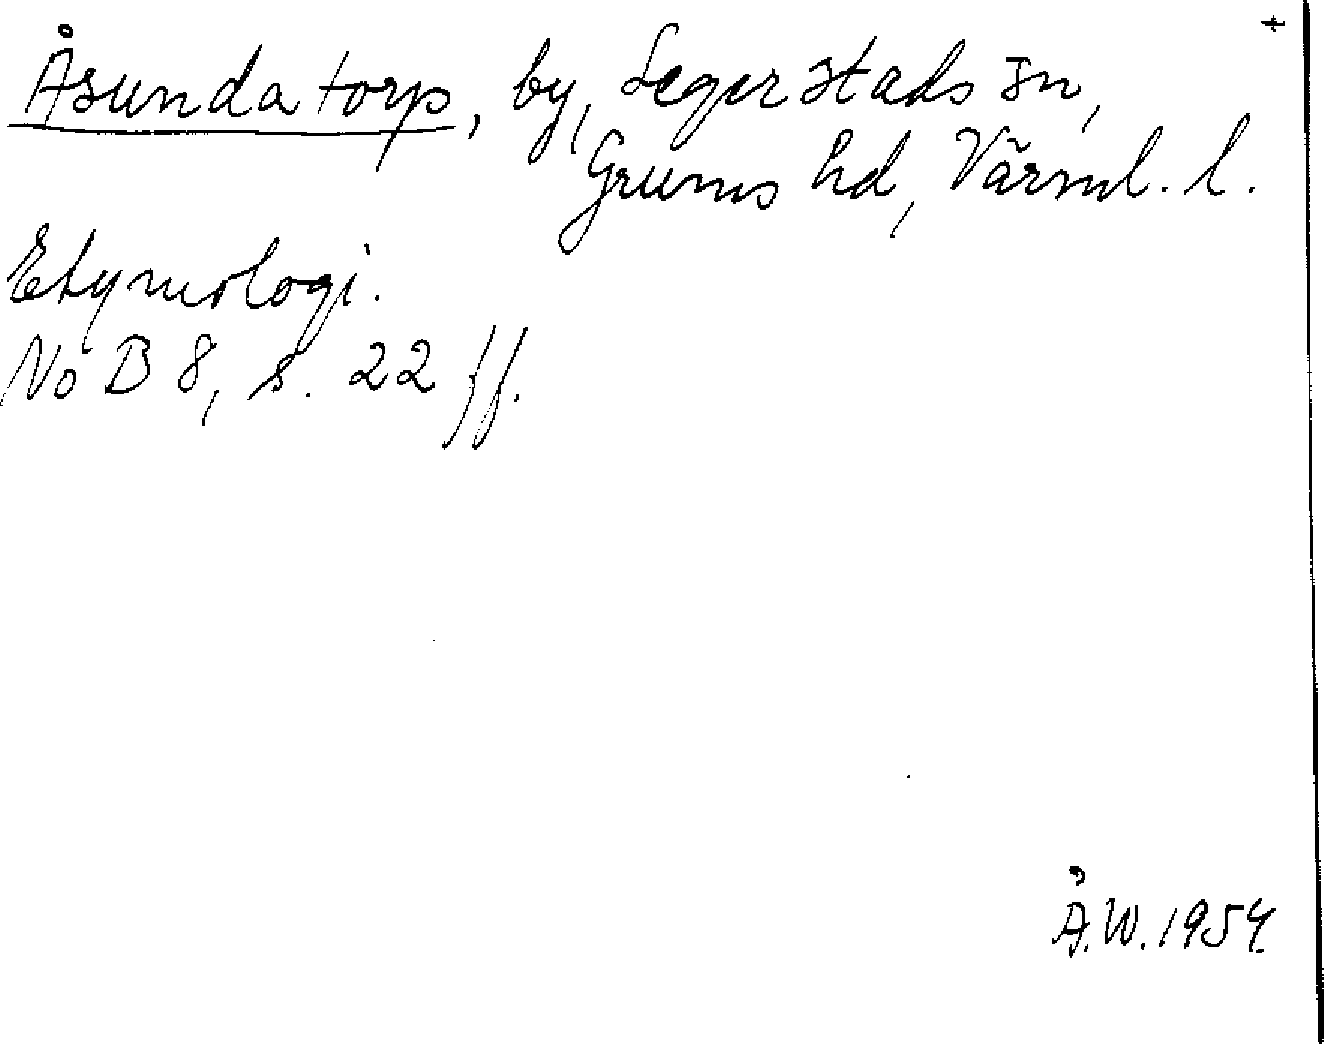 Åsundatorp, by, Segerstads sn,
Grums hd, Värml. l.
Etymologi.
NoB 8, s. 22 ff.
Å.W. 1954